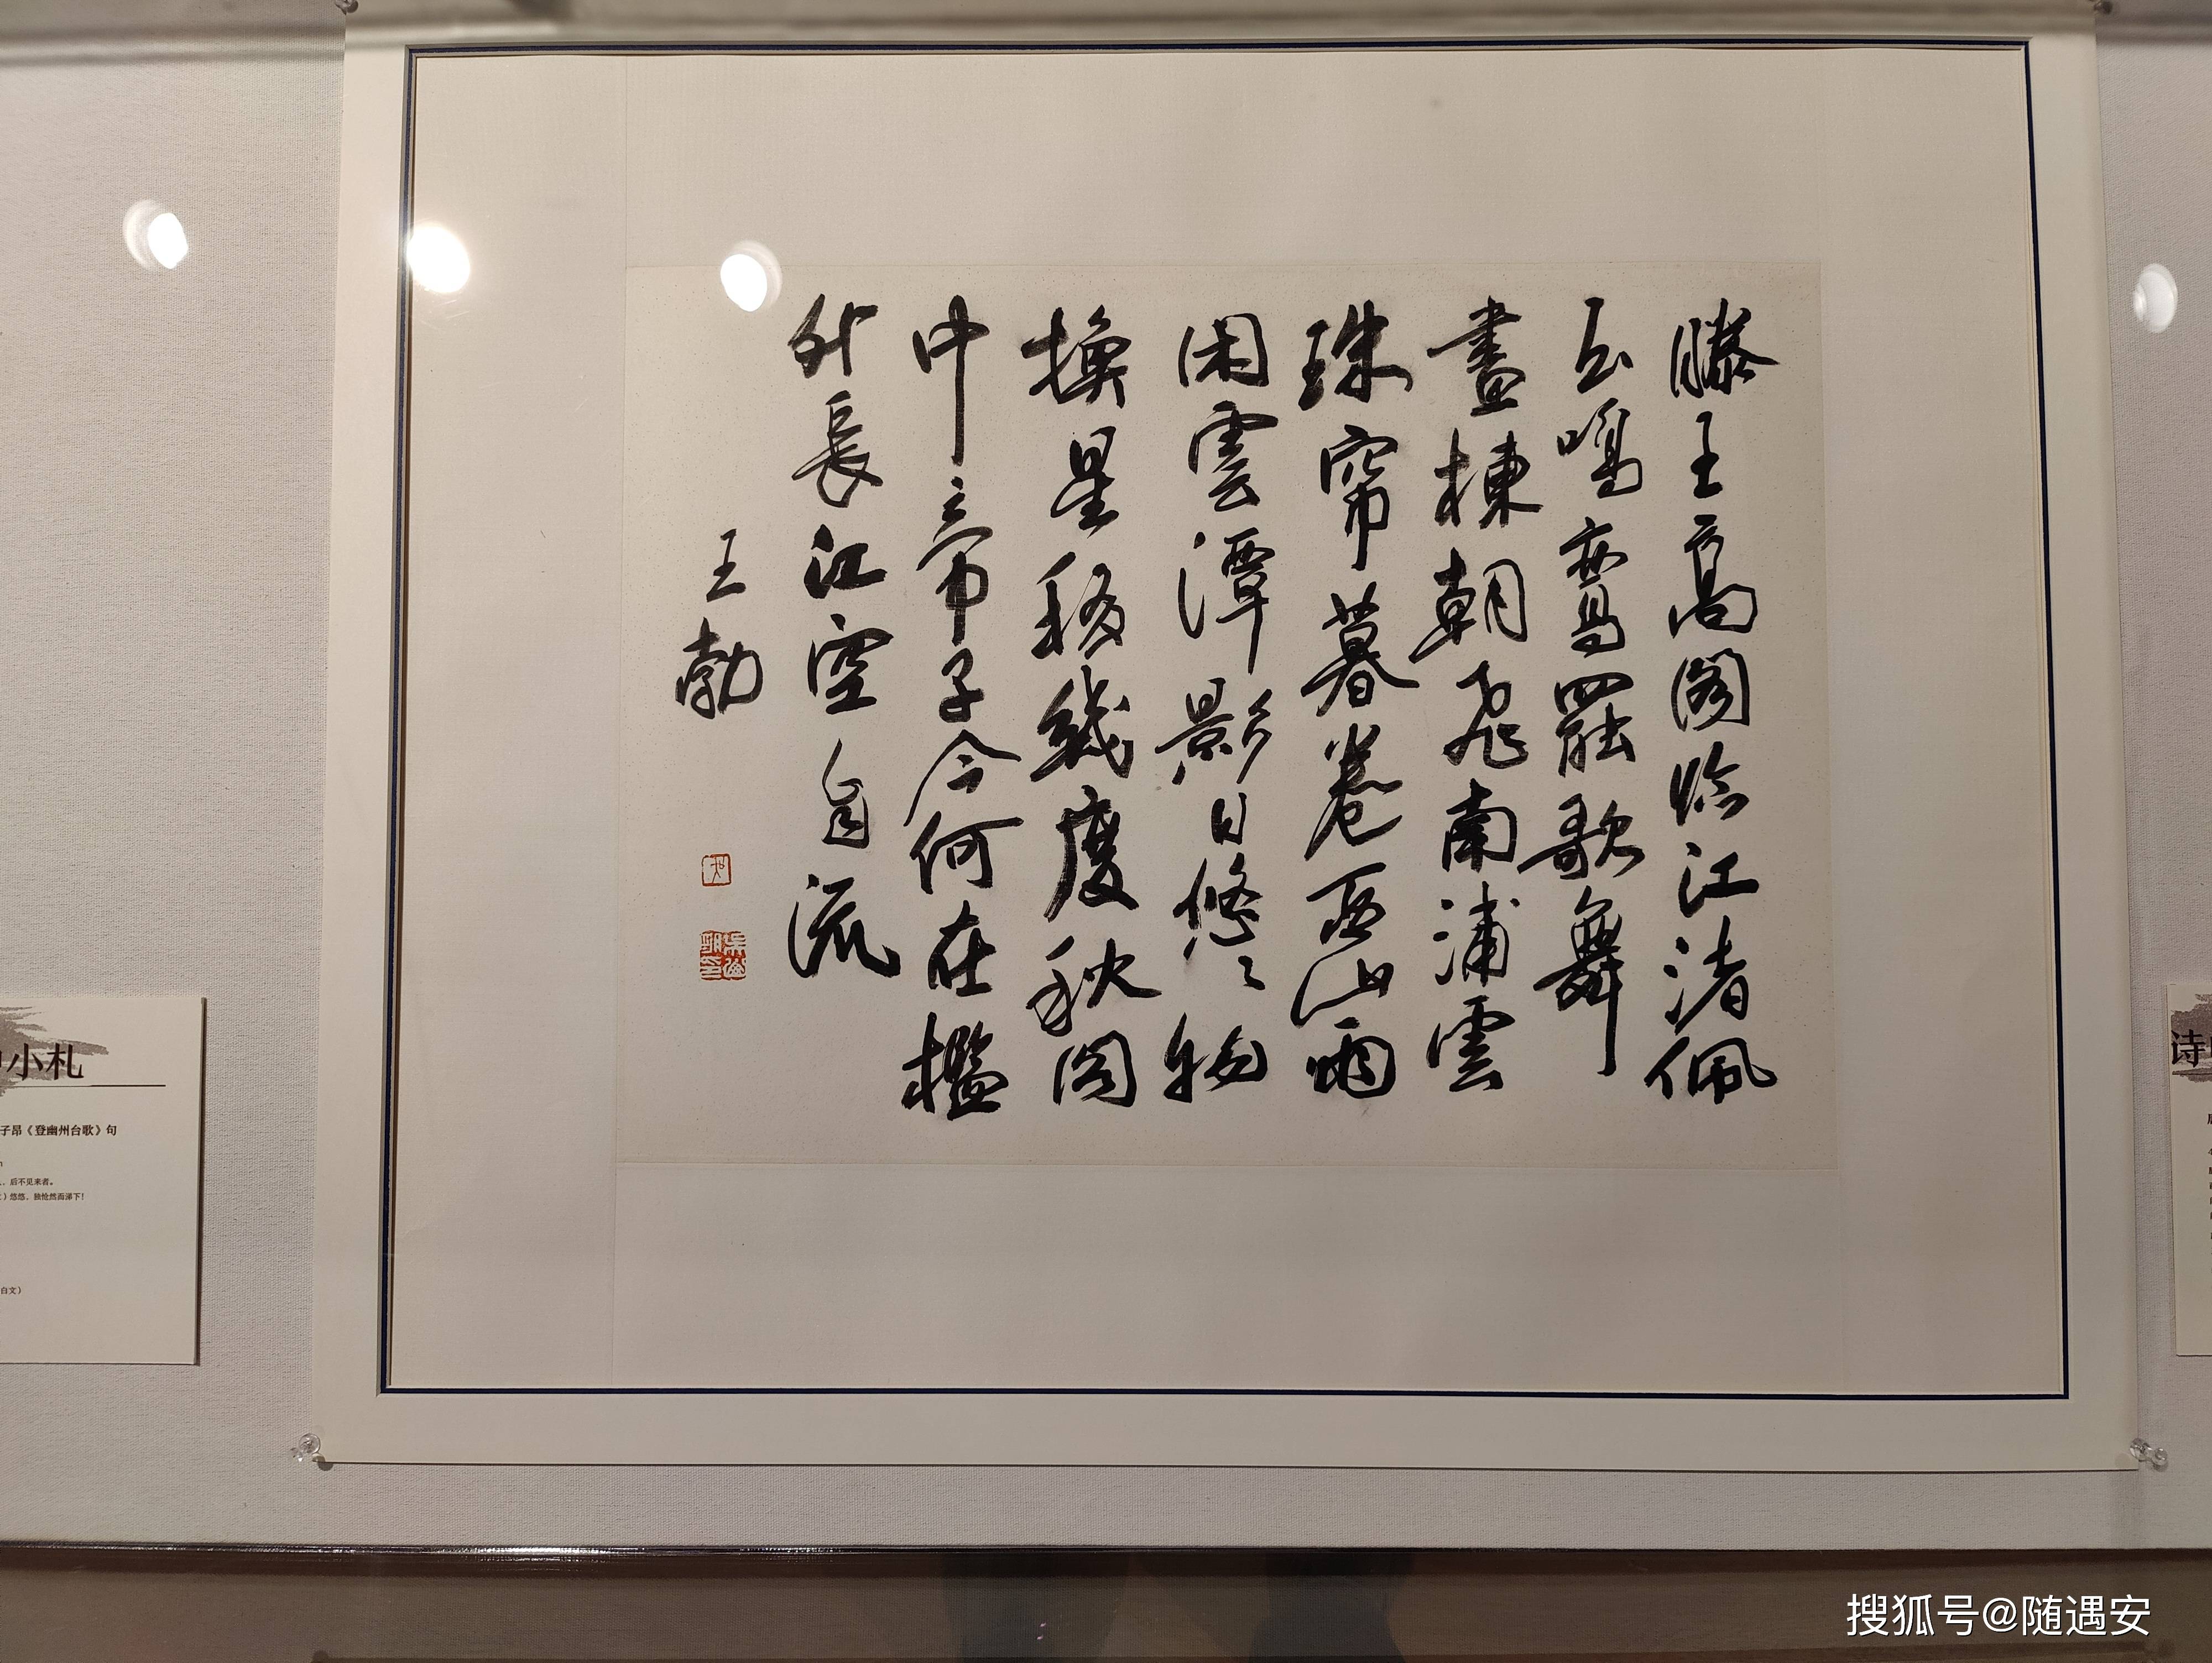 滕王高阁临江渚佩
玉鳴鸞罷歌舞
畫棟朝飛南浦雲
珠帘暮卷西山雨
闲雲潭影日悠々物
換星移幾度秋阁
中帝子今何在檻
外長江空自流
王勃
小札
子昂《登幽州台歌》句
，后不见来者。
）悠悠，独怆然而涕下！
白文）
诗
搜狐号@随遇安